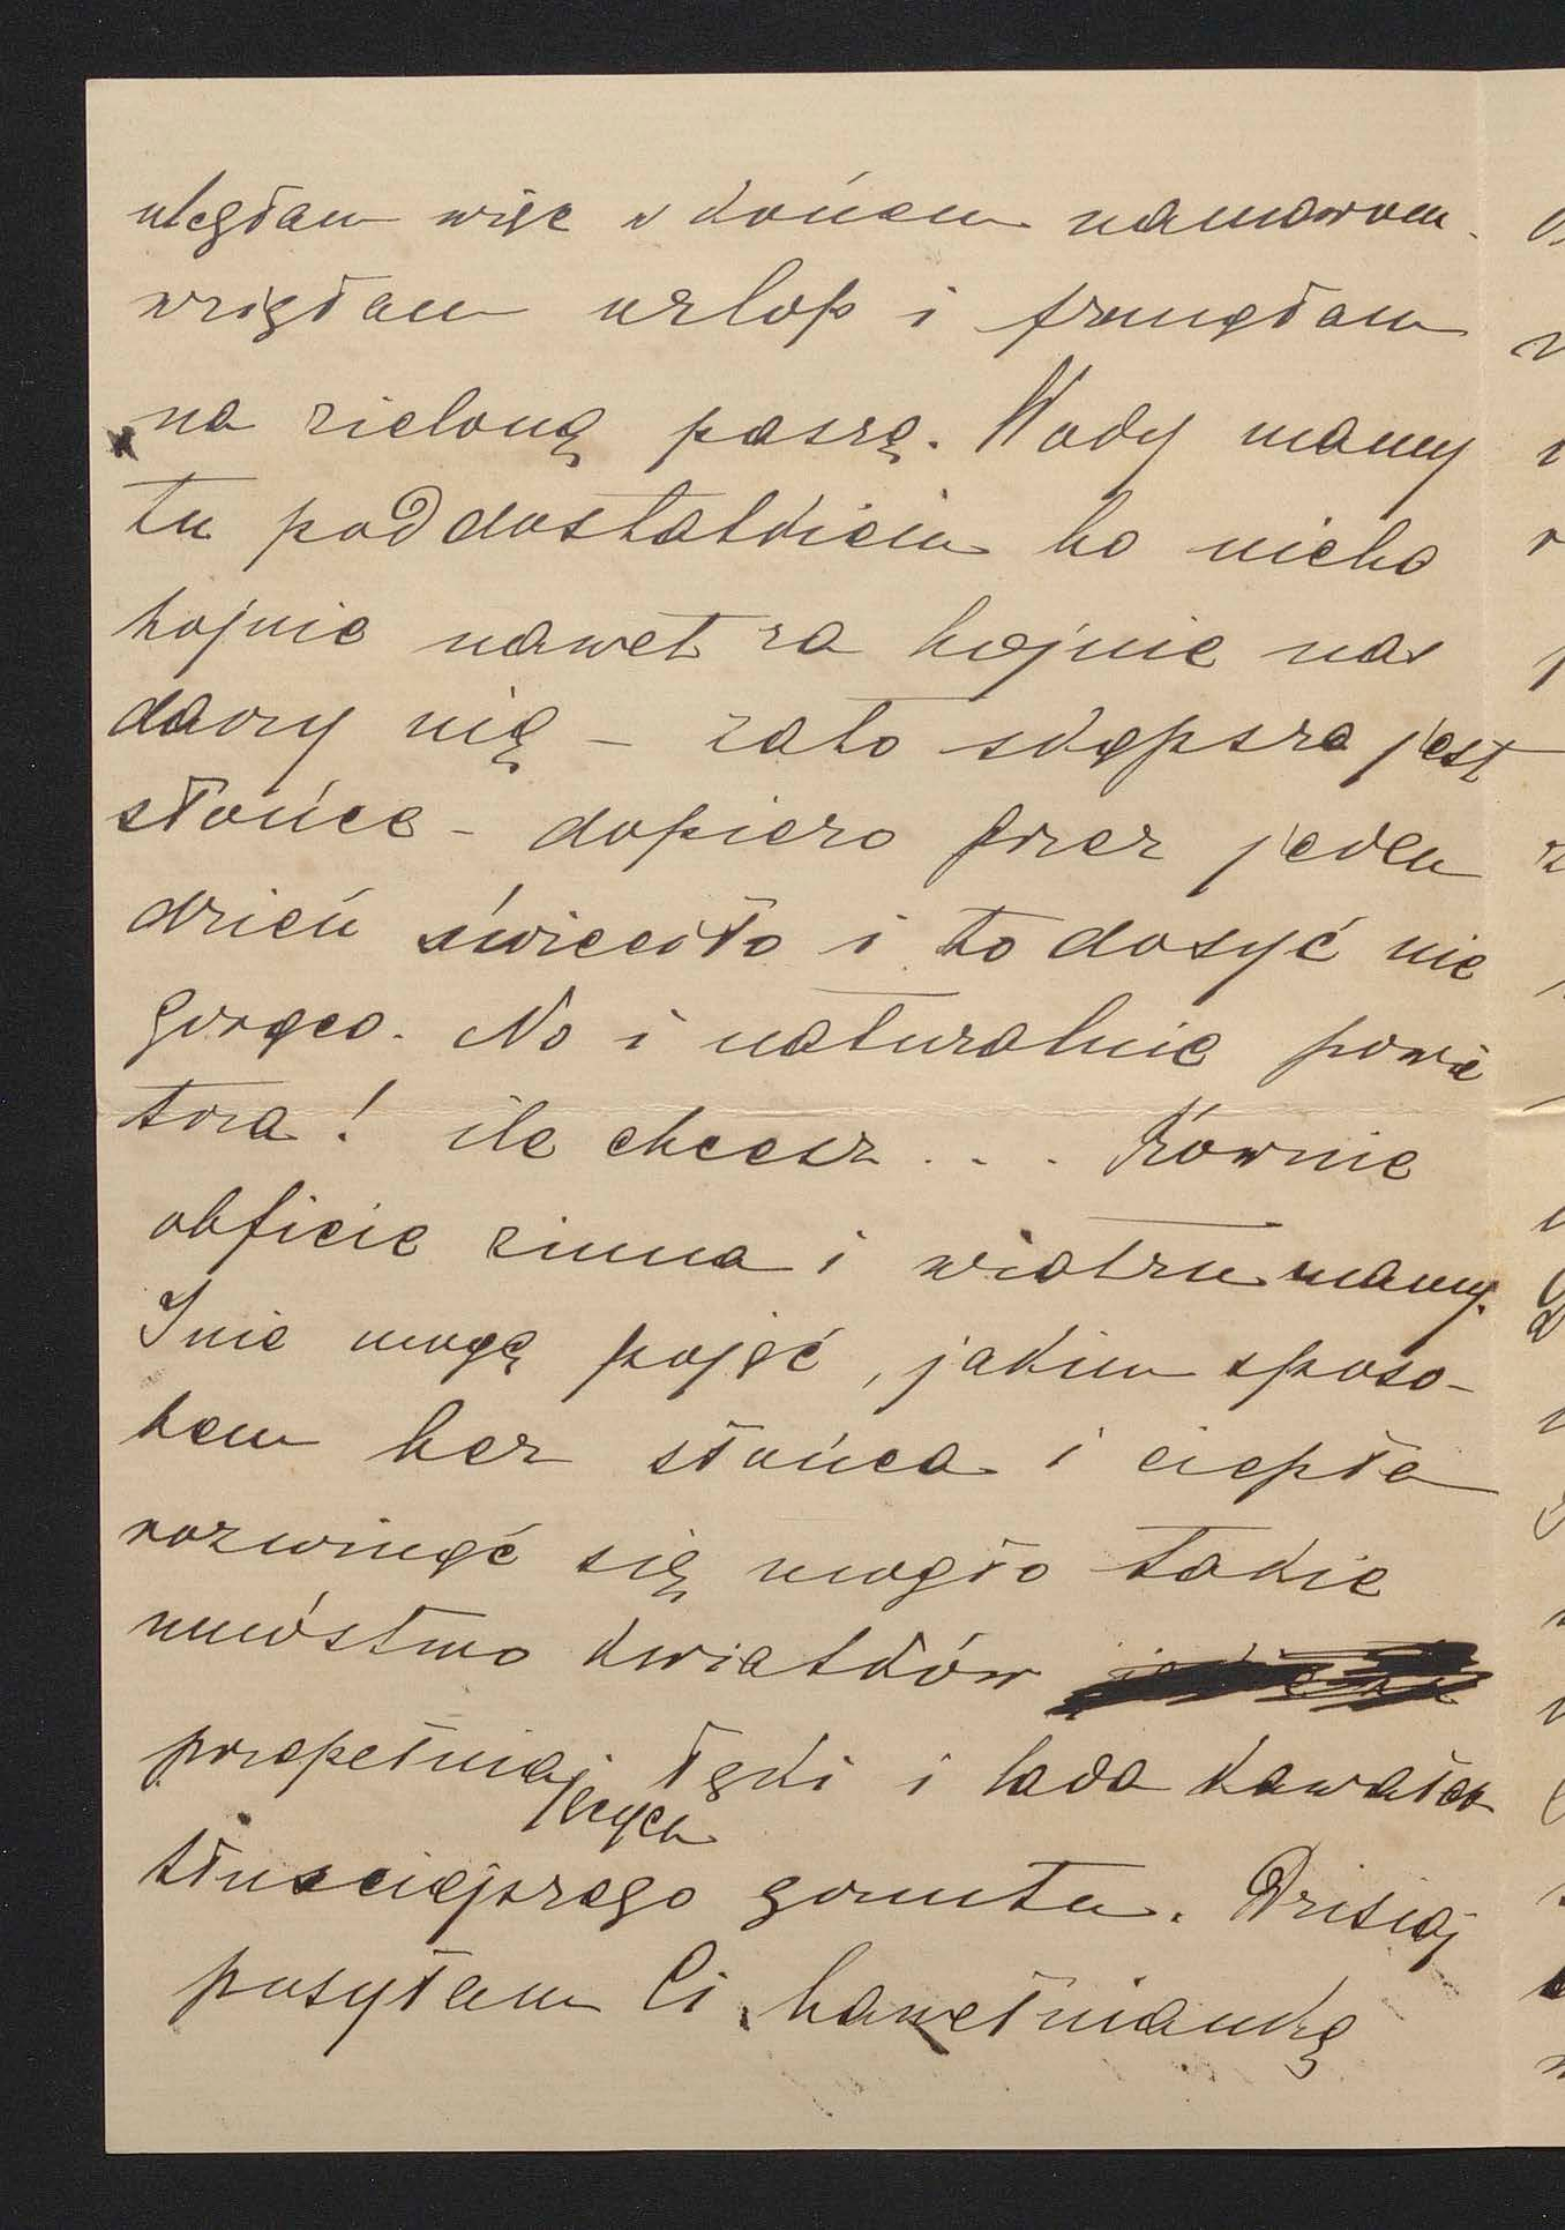 uległam więc w końcu namowom.
wzięłam urlop i frunęłam
na zieloną paszę. Wody mamy
tu pod dostatkiem bo niebo
hojnie nawet za hojnie nas
darzy nią – zato skąpsze jest
słońce – dopiero przez jeden
dzień świeciło i to dosyć nie
gorąco. No i naturalnie powie
trza! ile chcesz . . . Równie
obficie zimna i wiatru mamy.
I nie mogę pojąć, jakim sposo–
bem bez słońca i ciepła
rozwinąć się mogło takie
mnóstwo kwiatków
przepełniaj łąki i lada kawałek
ących
tłuściejszego gruntu. Dzisiaj
posyłam Ci bawełniankę